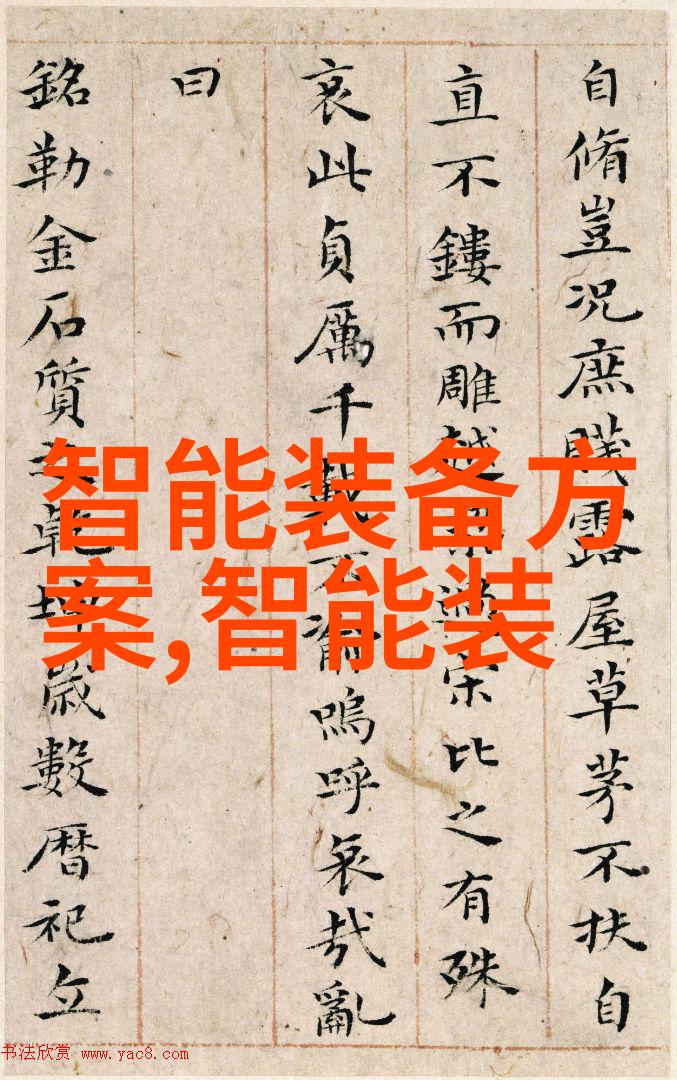 自脩豈况庶賤露屋草茅不扶自
直不鏤而雕越宋比之有殊
哀此貞厲千載不渝嗚呼哀哉亂
曰
銘勒金石質乾坤歲數曆祀立
智能装备方
案,智能装
书法欣赏 www.yac8.com